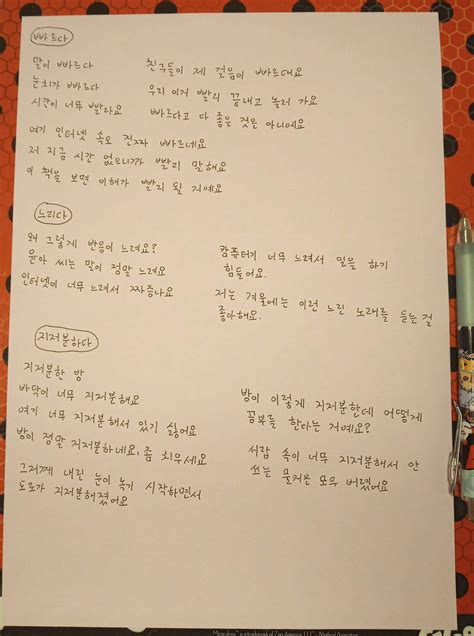 빠르다
말이 빠르다
눈치가 빠르다
시간이 너무 빨라요
친구들이 제 걸음이 빠르대요
우리 이거 빨리 끝내고 놀러 가요
빠르다고 다 좋은 것은 아니에요
여기 인터넷 속도 진짜 빠르네요
저 지금 시간 없으니까 빨리 말해요
이 책을 보면 이해가 빨리 될 거예요
느리다
왜 그렇게 반응이 느려요?
윤아 씨는 말이 정말 느려요
인터넷이 너무 느려서 짜증나요
컴퓨터가 너무 느려서 일을 하기
힘들어요.
저는 겨울에는 이런 느린 노래를 듣는 걸
좋아해요.
지저분하다
지저분한 방
바닥이 너무 지저분해요
여기 너무 지저분해서 있기 싫어요
방이 정말 지저분하네요, 좀 치우세요
그저께 내린 눈이 녹기 시작하면서
도로가 지저분해졌어요
방이 이렇게 지저분한데 어떻게
공부를 한다는 거예요?
서랍 속이 너무 지저분해서 안
쓰는 물건은 모두 버렸어요